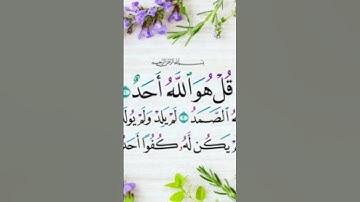 بسم الله الرحمن الرحيم
قُلْ هُوَ ٱللَّهُ أَحَدٌ ١
هُ ٱلصَّمَدُ ٢ لَمْ يَلِدْ وَلَمْ يُولَ
مْ يَكُن لَّهُۥ كُفُوًا أَحَدٌ